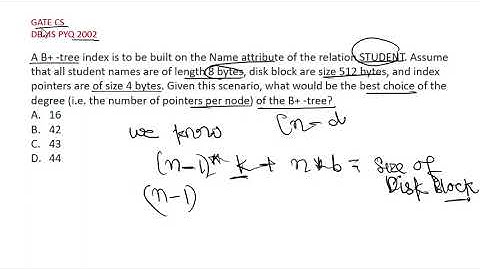 GATE CS
DBMS PYQ 2002
A B+ -tree index is to be built on the Name attribute of the relation STUDENT. Assume
that all student names are of length 8 bytes, disk block are size 512 bytes, and index
pointers are of size 4 bytes. Given this scenario, what would be the best choice of the
degree (i.e. the number of pointers per node) of the B+ -tree?
A. 16
B. 42
C. 43
D. 44
we know
(n-1)* k + n*b = Size of
Disk Block
(n-1)